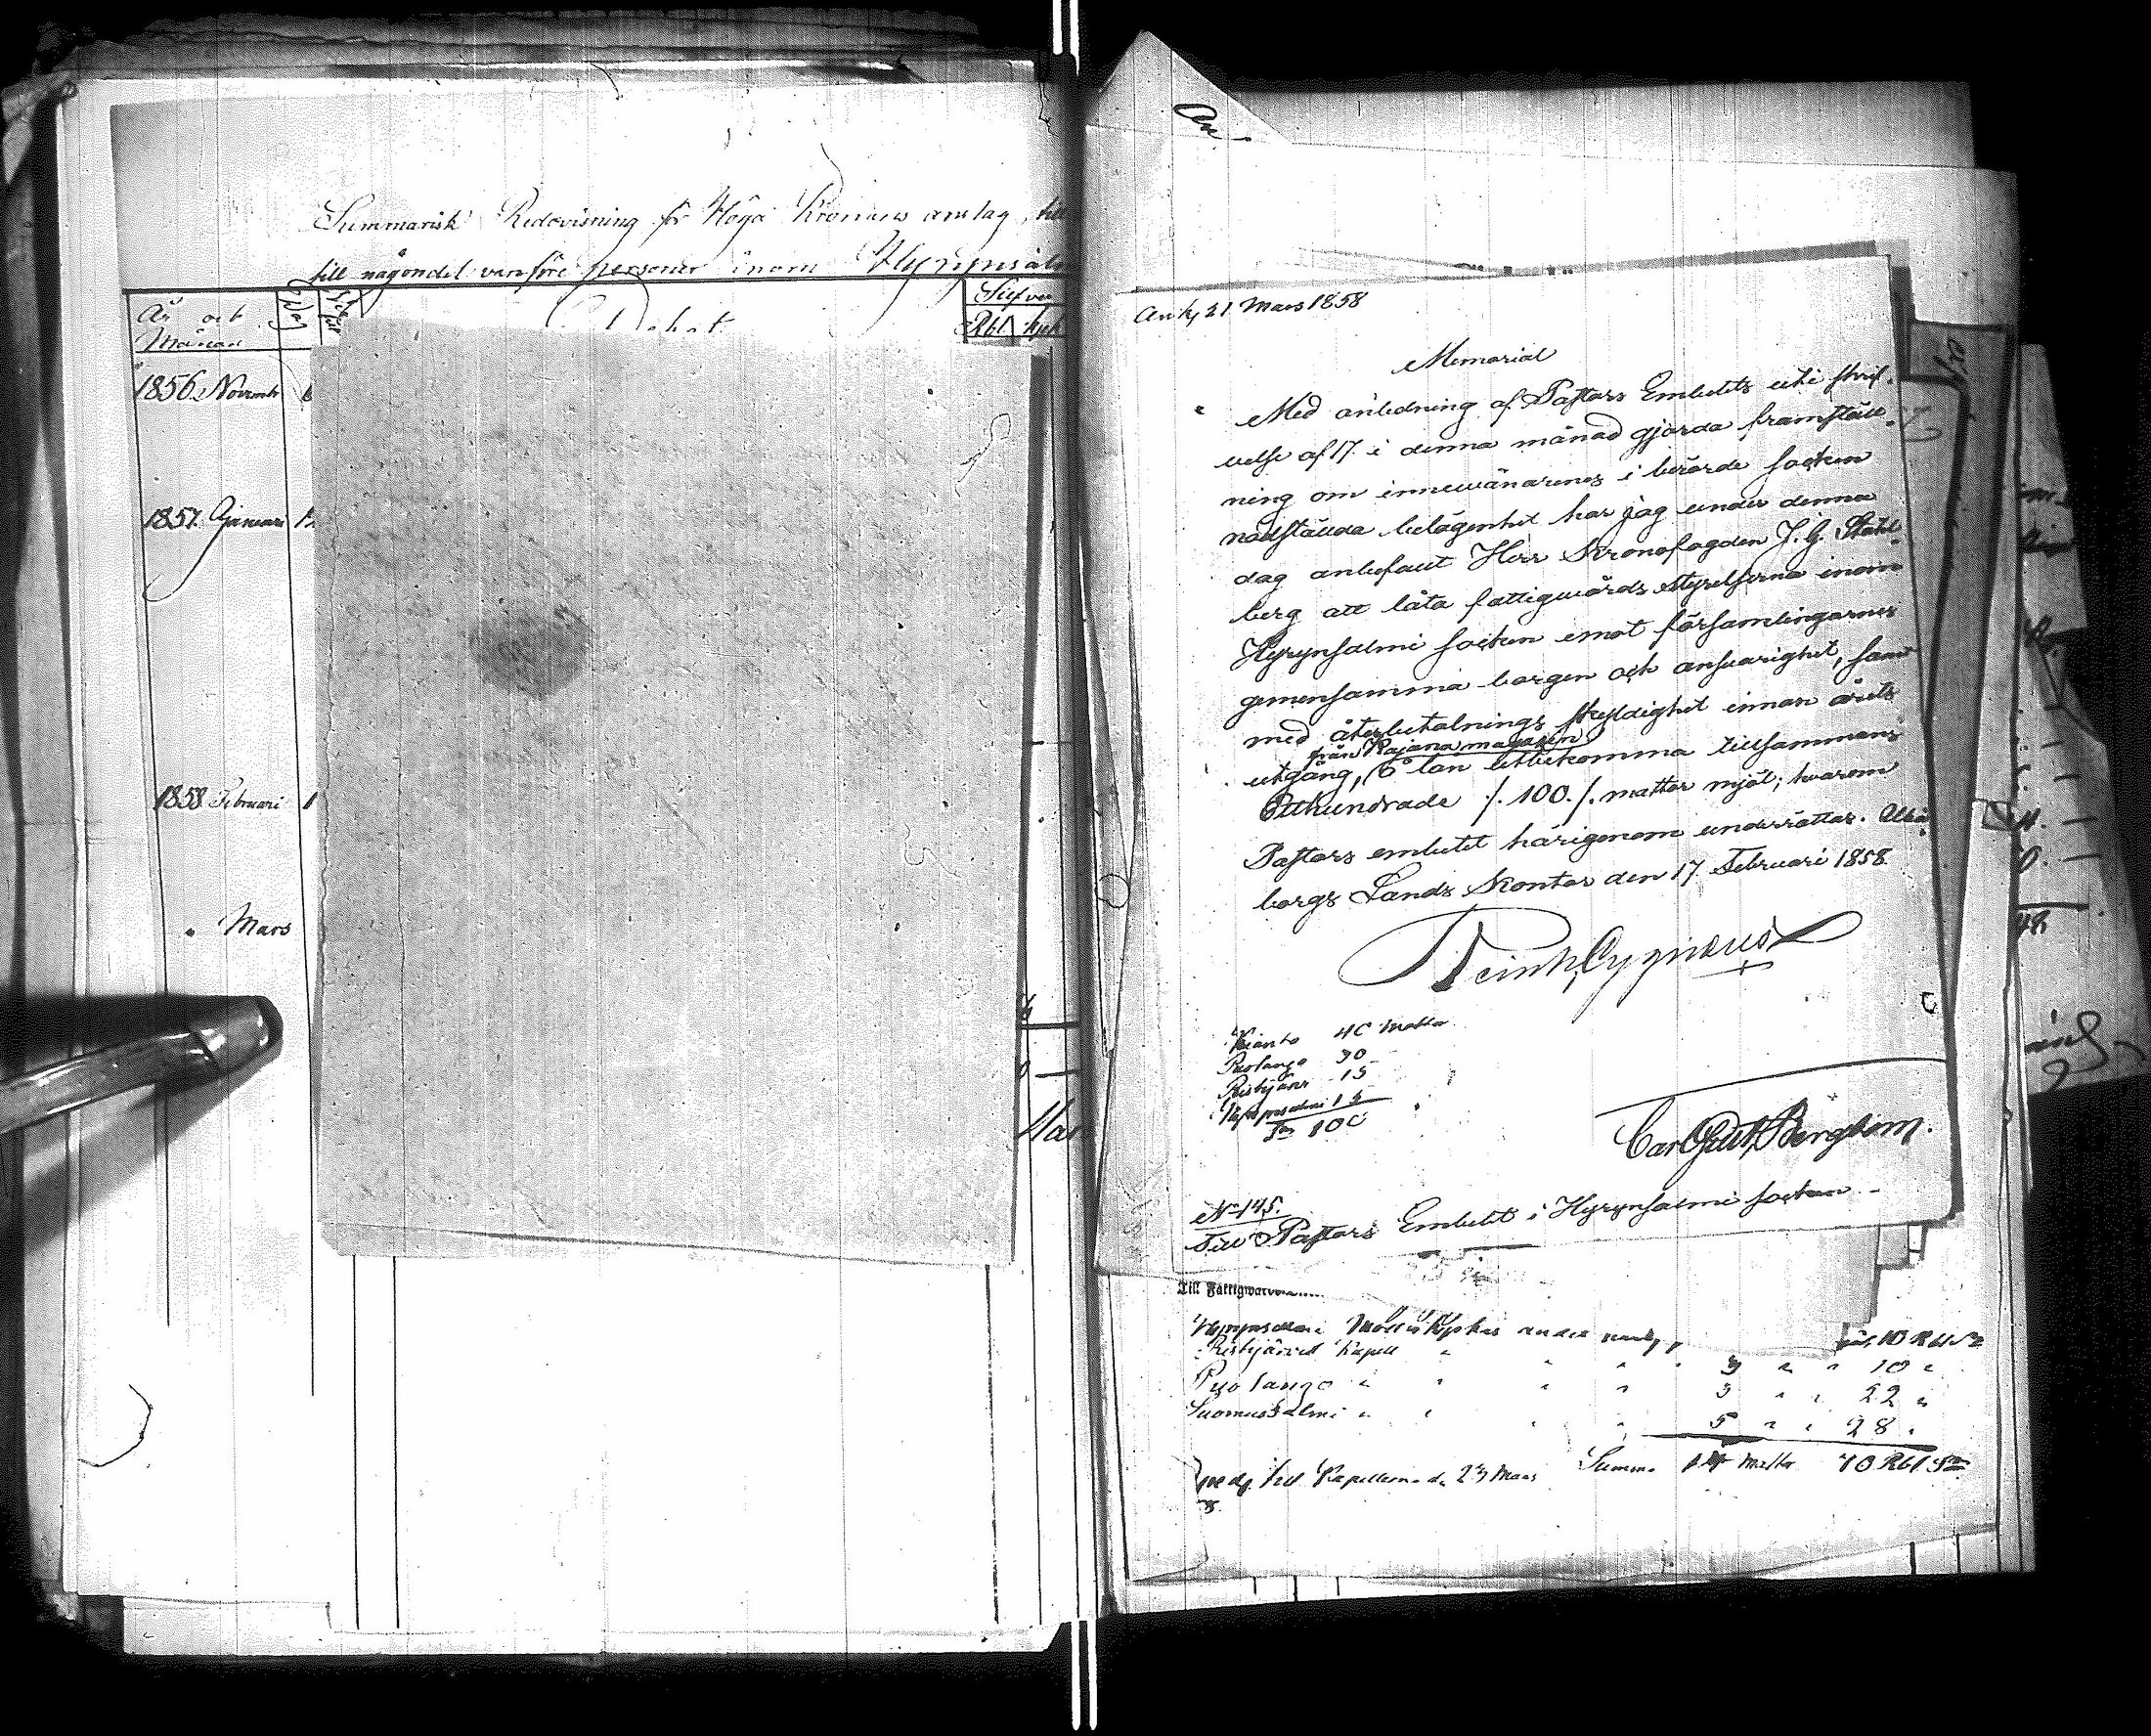 Summarisk Redovisning för Höga Kronans anslag, till
till någondel vanföre personer inom Hyrynsal
År och
Månan
Dag
Debet
Silfver
Rbl kpk
1856 Novemb 6
1857. Januari
1858 Februari 1
" Mars
Ank. 21 Mars 1858
Memorial
Med anledning af Pastors Embetets uti skrif-
velse af 17 i denna månad gjorda framställ-
ning om innevånarenes i berörde socken
nödställda belägenhet har jag under denna
dag anbefallt Herr Kronofogden J. G. Ståhl-
berg att låta fattigvårds styrelserna inom
Hyrynsalmi socken emot församlingarnes
gemensamma borgen och ansvarighet, samt
med återbetalnings skyldighet innan årets
från Kajana magasin
utgång, å lån utbekomma tillsammans
Etthundrade /. 100. /. mattor mjöl; hvarom
Pastors embetet härigenom underrättas. Uleå-
borgs Lands Kontor den 17 Februari 1858.
Cygnæus
Kianto 40 Mattor
Puolango 30
Ristijärvi 15
Hyrynsalmi 15
Sa 100
Carl Gust Bergbom.
No 145.
Till Pastors Embetet i Hyrynsalmi socken
Till Fattigvård
Hyrynsalmi Moderkyrkas andel 10 Rbl Sr
Ristijärvi Kapell " " " " 3 " " 10 "
Puolango " " " " 3 " " 22 "
Suomussalmi " " " " 5 " " 28 "
Summa 14 Mattor 70 Rbl Sr
till Kapellerna d. 23 Mars